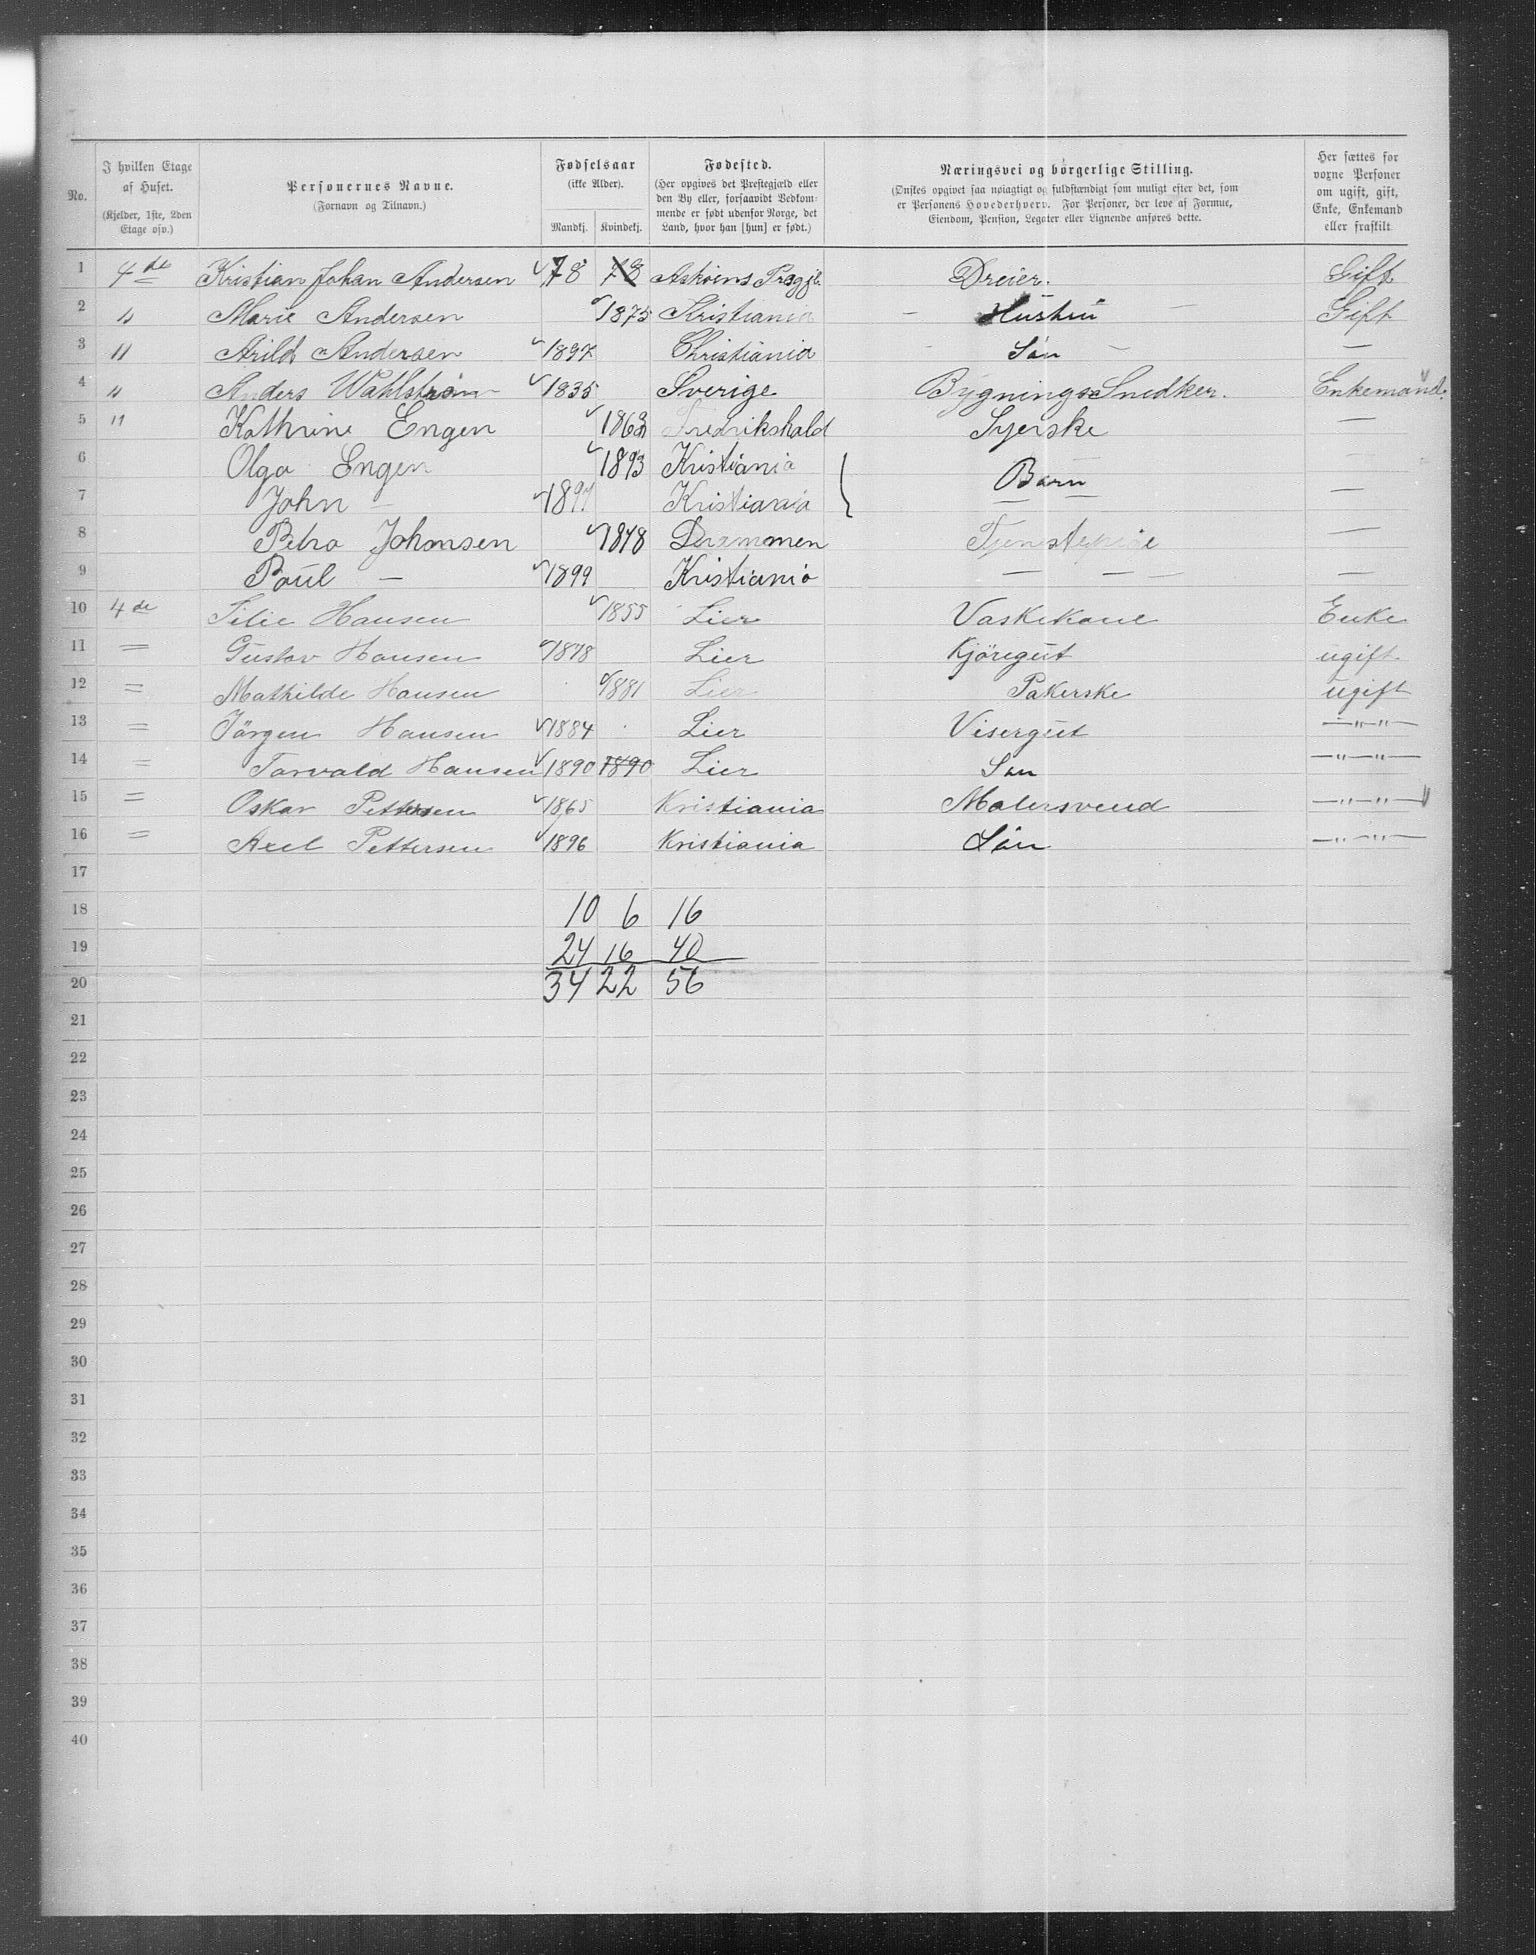 No. | I hvilken Etage af Huset. (Kjelder, 1ste, 2den Etage osv.) | Personernes Navne. (Fornavn og Tilnavn.) | Fødselsaar (ikke Alder). Mandkj. Kvindekj. | Fødested. (Her opgives det Prestegjæld eller den By eller, forsaavidt Vedkommende er født udenfor Norge, det Land, hvor han [hun] er født.) | Næringsvei og borgerlige Stilling. (Ønskes opgivet saa nøiagtigt og fuldstændigt som muligt efter det, som er Personens Hovederhverv. For Personer, der leve af Formue, Eiendom, Pension, Legater eller Lignende anføres dette. | Her sættes for voxne Personer om ugift, gift, Enke, Enkemand eller fraskilt
1 4de Kristian Johan Andersen 78 78 Askøens Prægjl. Dreier. Gift
2 " Marie Andersen 1875 Kristiania – Hustru – Gift
3 " Arild Andersen 1897 Christiania Søn – —
4 " Anders Wahlstrøm 1835 Sverige Bygnings Snedker. Enkemand.
5 " Kathrine Engen 1863 Fredrikshald Syerske —
6 Olga Engen 1893 Kristiania Barn
7 John – 1897 Kristiania — — —
8 Petra Johnsen 1878 Drammen Tjenestepige —
9 Paul – 1899 Kristiania — — — —
10 4de Silie Hansen 1855 Lier Vaskekone Enke
11 = Gustav Hansen 1878 Lier Kjøregut ugift
12 = Mathilde Hansen 1881 Lier Pakerske ugift
13 = Jörgen Hansen 1884 Lier Visergut —"—"—
14 = Torvald Hansen 1890 1890 Lier Søn —"—"—
15 = Oskar Pettersen 1865 Kristiania Malersvend —"—"—
16 = Axel Pettersen 1896 Kristiania Søn —"—"—
17
18 10 6 16
19 24 16 40
20 34 22 56
21
22
23
24
25
26
27
28
29
30
31
32
33
34
35
36
37
38
39
40